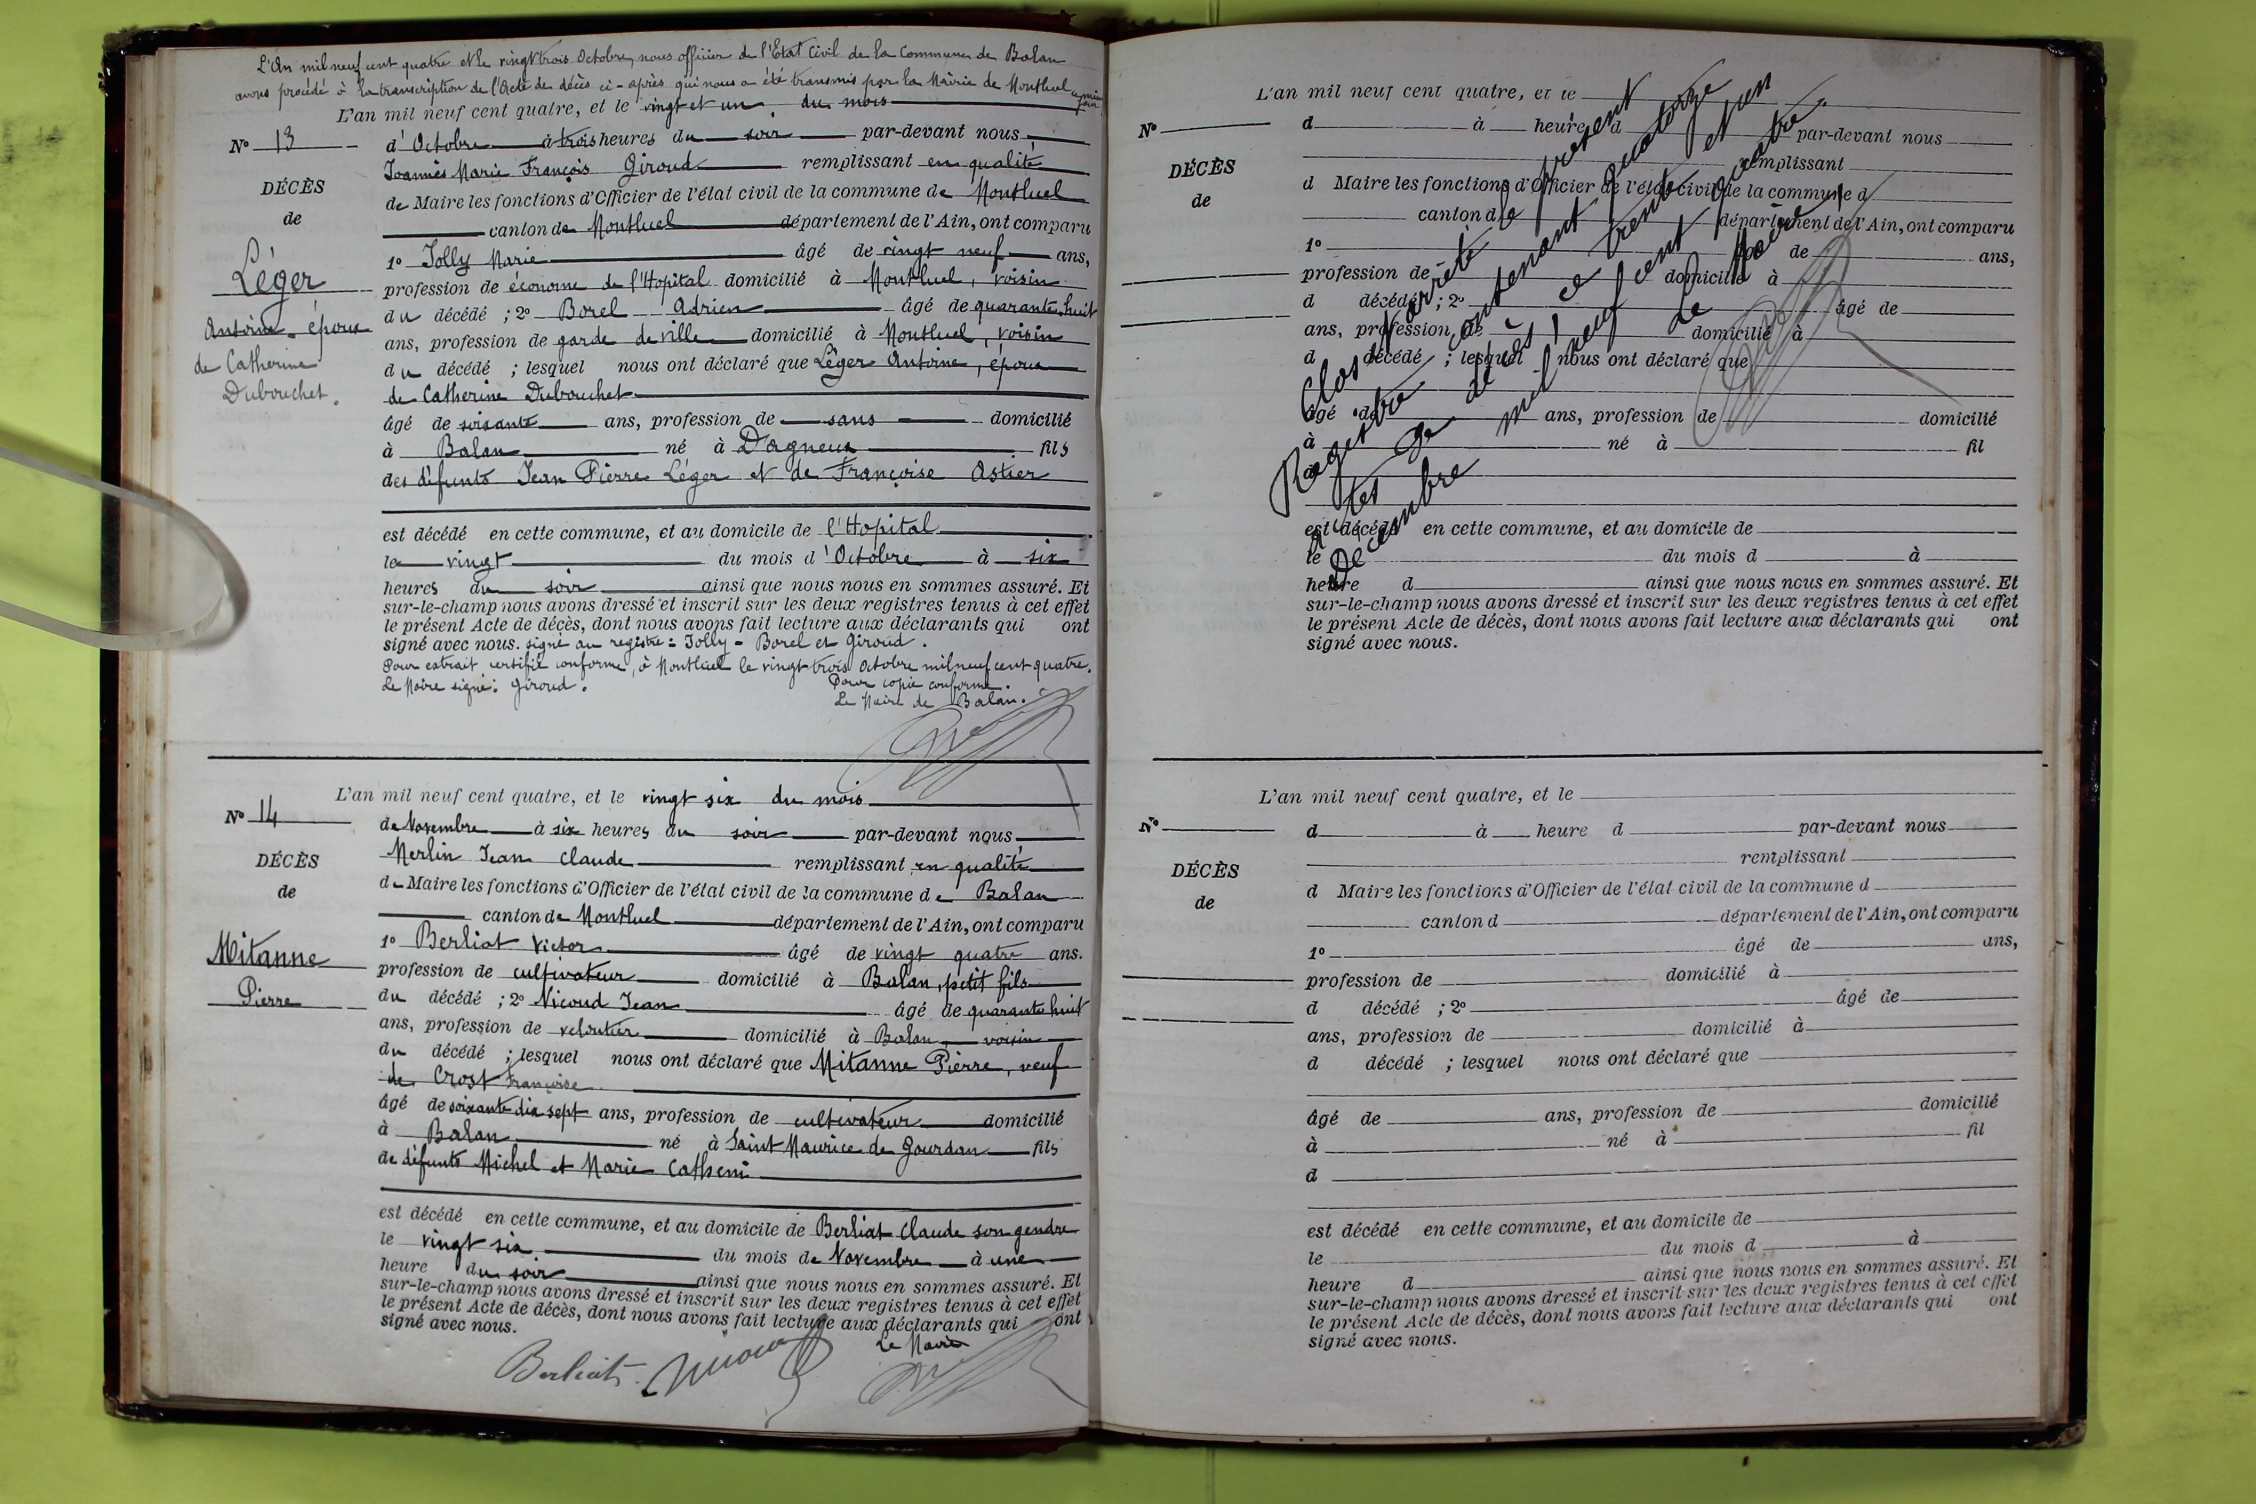 L'An mil neuf cent quatre et le vingt trois Octobre, nous officier de l'Etat Civil de la Commune de Balan
avons procédé à la transcription de l'Acte de décès ci-après qui nous a été transmis par la Mairie de Montluel
L'an mil neuf cent quatre, et le vingt et un du mois
No 13
d'Octobre à trois heures du soir par-devant nous
Joannès Marie François Giroud remplissant en qualité
DÉCÈS
de Maire les fonctions d'Officier de l'état civil de la commune de Montluel
de
canton de Montluel département de l'Ain, ont comparu
1o Jolly Marie âgé de vingt neuf ans,
Léger
profession de économe de l'Hopital domicilié à Montluel, voisin
du décédé ; 2o Borel Adrien âgé de quarante huit
Antoine époux
ans, profession de garde de ville domicilié à Montluel, voisin
de Catherine
du décédé ; lesquel nous ont déclaré que Léger Antoine, époux
Dubouchet.
de Catherine Dubouchet
âgé de soixante ans, profession de sans domicilié
à Balan né à Dagneux fils
des défunts Jean Pierre Léger et de Françoise Astier
est décédé en cette commune, et au domicile de l'Hopital
le vingt du mois d'Octobre à six
heures du soir ainsi que nous nous en sommes assuré. Et
sur-le-champ nous avons dressé et inscrit sur les deux registres tenus à cet effet
le présent Acte de décès, dont nous avons fait lecture aux déclarants qui ont
signé avec nous. signé au registre : Jolly - Borel et Giroud.
Pour extrait certifié conforme, à Montluel le vingt trois Octobre mil neuf cent quatre.
Le Maire signé : Giroud.
Pour copie conforme.
Le Maire de Balan.
L'an mil neuf cent quatre, et le vingt six du mois
No 14
de Novembre à six heures du soir par-devant nous
Merlin Jean Claude remplissant en qualité
DÉCÈS
de Maire les fonctions d'Officier de l'état civil de la commune de Balan
de
canton de Montluel département de l'Ain, ont comparu
1o Berliat Victor âgé de vingt quatre ans.
Mitanne
profession de cultivateur domicilié à Balan, petit fils
Pierre
du décédé ; 2o Nicoud Jean âgé de quarante huit
ans, profession de veloutier domicilié à Balan voisin
du décédé ; lesquel nous ont déclaré que Mitanne Pierre, veuf
de Crost Françoise
âgé de soixante dix sept ans, profession de cultivateur domicilié
à Balan né à Saint Maurice de Gourdan fils
de défunts Michel et Marie
est décédé en cette commune, et au domicile de Berliat Claude son gendre
le vingt six du mois de Novembre à une
heure du soir ainsi que nous nous en sommes assuré. Et
sur-le-champ nous avons dressé et inscrit sur les deux registres tenus à cet effet
le présent Acte de décès, dont nous avons fait lecture aux déclarants qui ont
signé avec nous.
Le Maire
Berliat
L'an mil neuf cent quatre, et le
No
d à heure d par-devant nous
remplissant
DÉCÈS
d Maire les fonctions d'Officier de l'état civil de la commune d
de
canton d département de l'Ain, ont comparu
1o de ans,
profession de domicilié à
d décédé ; 2o âgé de
ans, profession de domicilié à
d décédé ; lesquel nous ont déclaré que
âgé de ans, profession de domicilié
à né à fil
est décédé en cette commune, et au domicile de
le du mois d à
heure d ainsi que nous nous en sommes assuré. Et
sur-le-champ nous avons dressé et inscrit sur les deux registres tenus à cet effet
le présent Acte de décès, dont nous avons fait lecture aux déclarants qui ont
signé avec nous.
Clos et arrêté le présent
Registre contenant quatorze
Actes de décès ! ce trente et un
Décembre mil neuf cent quatre.
Le Maire
L'an mil neuf cent quatre, et le
No
d à heure d par-devant nous
remplissant
DÉCÈS
d Maire les fonctions d'Officier de l'état civil de la commune d
de
canton d département de l'Ain, ont comparu
1o âgé de ans,
profession de domicilié à
d décédé ; 2o âgé de
ans, profession de domicilié à
d décédé ; lesquel nous ont déclaré que
âgé de ans, profession de domicilié
à né à fil
d
est décédé en cette commune, et au domicile de
le du mois d à
heure d ainsi que nous nous en sommes assuré. Et
sur-le-champ nous avons dressé et inscrit sur les deux registres tenus à cet effet
le présent Acte de décès, dont nous avons fait lecture aux déclarants qui ont
signé avec nous.